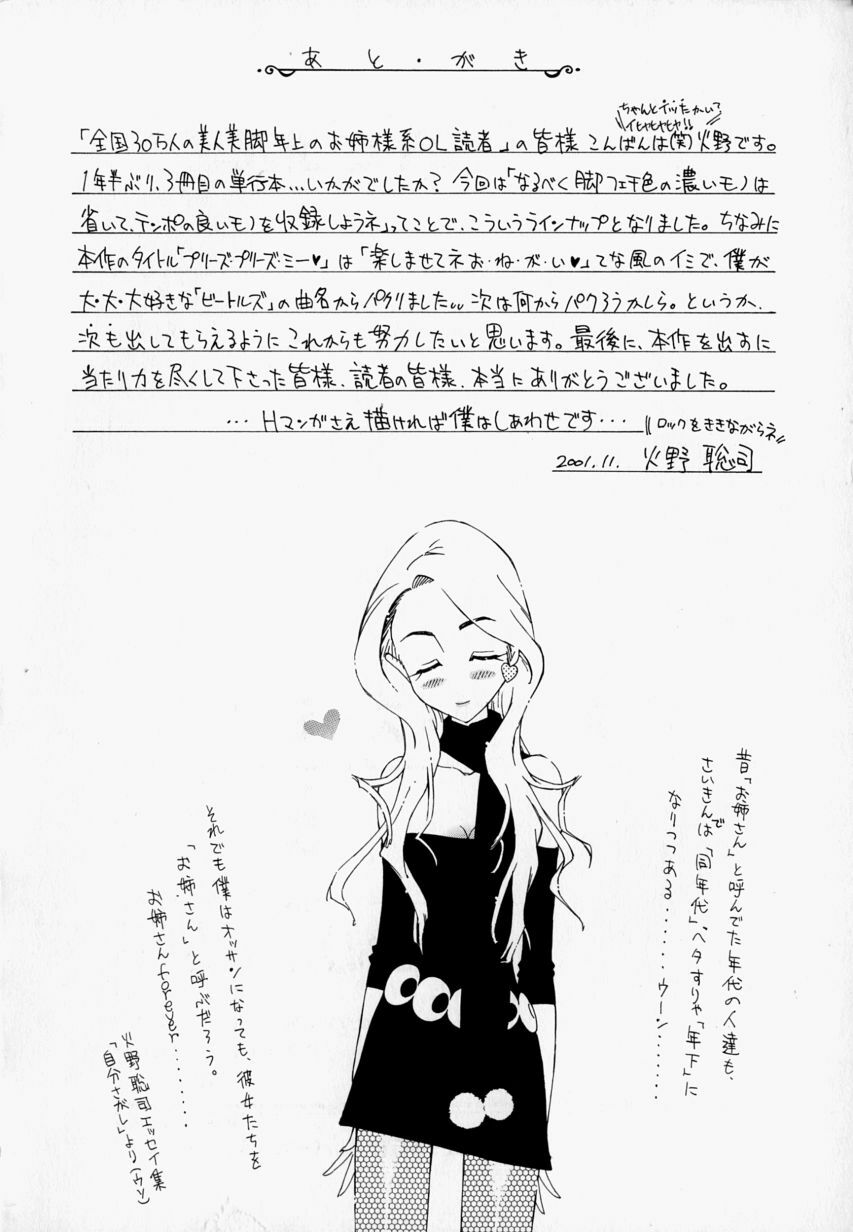 あと・がき
ちゃんとボッたかい?
イヒヒヒヒヒ!!
「全国30万人の美人美脚年上のお姉様系OL読者」の皆様 こんばんは(笑)火野です。
1年半ぶり、3冊目の単行本…いかがでしたか? 今回は「なるべく脚フェチ色の濃いモノは
省いて、テンポの良いモノを収録しようネ」ってことで、こういうラインナップとなりました。ちなみに
本作のタイトル「プリーズ・プリーズ・ミー♥」は「楽しませてネお・ね・が・い♥」てな風のイミで、僕が
大・大・大好きな「ビートルズ」の曲名からパクりました〃 次は何からパクろうかしら。というか、
次も出してもらえるように これからも努力したいと思います。最後に、本作を出すに
当たり力を尽くして下さった皆様、読者の皆様、本当にありがとうございました。
…Hマンガさえ描ければ僕はしあわせです…
\\ロックをききながらネ//
2001.11. 火野 聡司
昔「お姉さん」と呼んでた年代の人達も、
さいきんでは「同年代」、ヘタすりゃ「年下」に
なりつつある‥‥‥ウーン‥‥‥
それでも僕はオッサンになっても、彼女たちを
「お姉さん」と呼ぶだろう。
お姉さんforever‥‥‥‥
火野聡司エッセイ集
「自分さがし」より(ウソ)